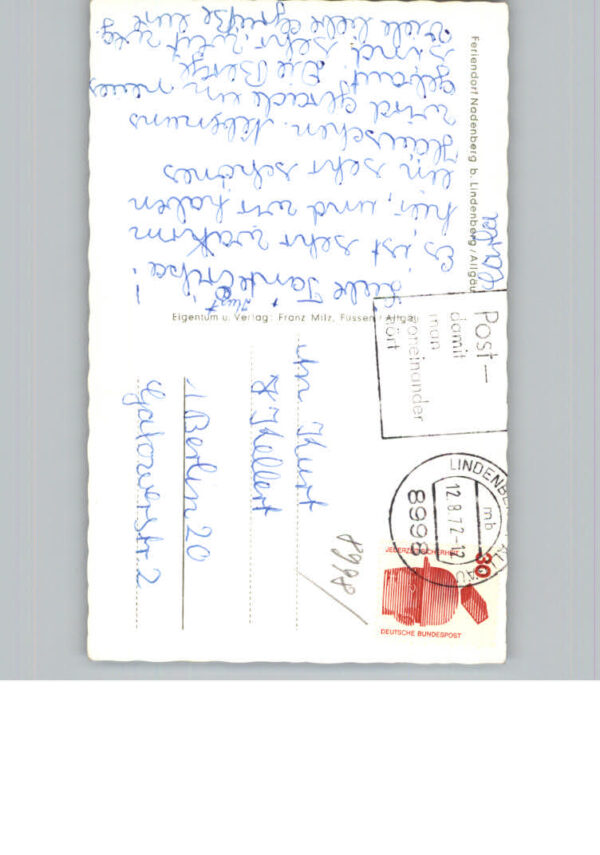 Feriendorf Nadenberg b. Lindenberg/Allgäu
Liebe Tante Erika!
+ Kurt
Es ist sehr warm
hier, und wir haben
ein sehr schönes
Häuschen. Nebenuns
wird gerade ein neues
gebaut. Die Berge
sind sehr weit weg.
Viele liebe Grüße eure
Eigentum u. Verlag: Franz Milz, Füssen/Allgäu
Post—
damit
man
voneinander
hört
LINDENBERG
ALLGÄU
12.8.72-12
mb
8998
JEDERZEIT SICHERHEIT
30
DEUTSCHE BUNDESPOST
8998/
Kurt
Kellert
1 Berlin 20
Gatowerstr. 2